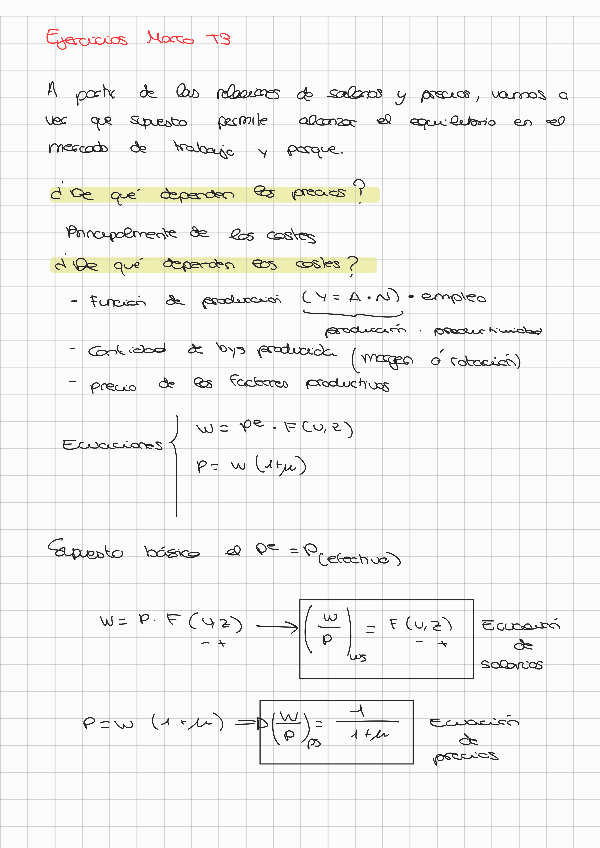 Ejercicios Macro T3
A partir de las relaciones de salarios y precios, vamos a
ver que supuesto permite alcanzar el equilibrio en el
mercado de trabajo y porque.
¿De qué dependen los precios?
Principalmente de los costes
¿De qué dependen los costes?
- Función de producción (Y = A · N) · empleo
producción · productividad
- Cantidad de bys producida (margen ó rotación)
- precio de los factores productivos
Ecuaciones { W = pe · F(u,z)
P = W (1+μ)
Supuesto básico el pe = P(efectivo)
W = P · F(u,z) → (W/P)ws = F(u,z) Ecuación de salarios
- + - +
P = W (1+μ) ⇒ (W/P)ps = 1/(1+μ) Ecuación de precios